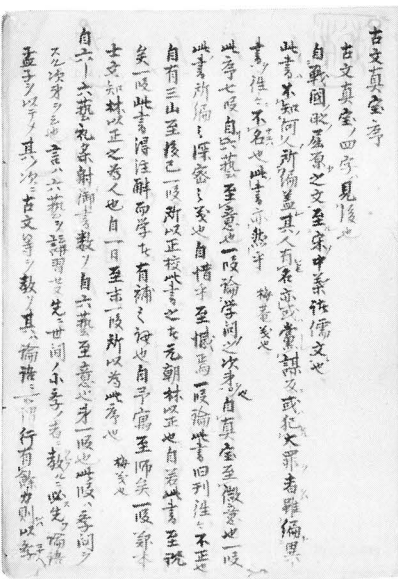 古文真宝序
古文真宝ノ四字見後也
自戦国ノ屈原之文至宋中葉諸儒文也
此書不知何人所編蓋其人有名亦或党謀反或犯大罪者雖編異
書往々不名也此書亦然乎 梅菴義也
此序七段自六藝至意也一段論学問之次第也自真宝至微意也一段
此書所編之深密之義也自惜乎至憾焉一段論此書旧刊往々不正也
自有三山至後已一段所以正校此書之在元朝林以正也自若此書至説
矣一段此書得注解而学者有補之謂也自予寓至師矣一段鄭本
士文知林以正之為人也自一日至末一段所以為此序也 梅義也
自六ー六藝礼楽射御書数ソ自六藝至意也第一段也此段ハ学問ノ
次第ヲ云也言ハ六藝ヲ講習セハ先ツ世間ノ小学ノ者ニ教ルニハ必先ツ論語
孟子ヲ以テメ其ノ次ニ古文等ヲ教ソ其ハ論語ニ謂行有餘力則以学